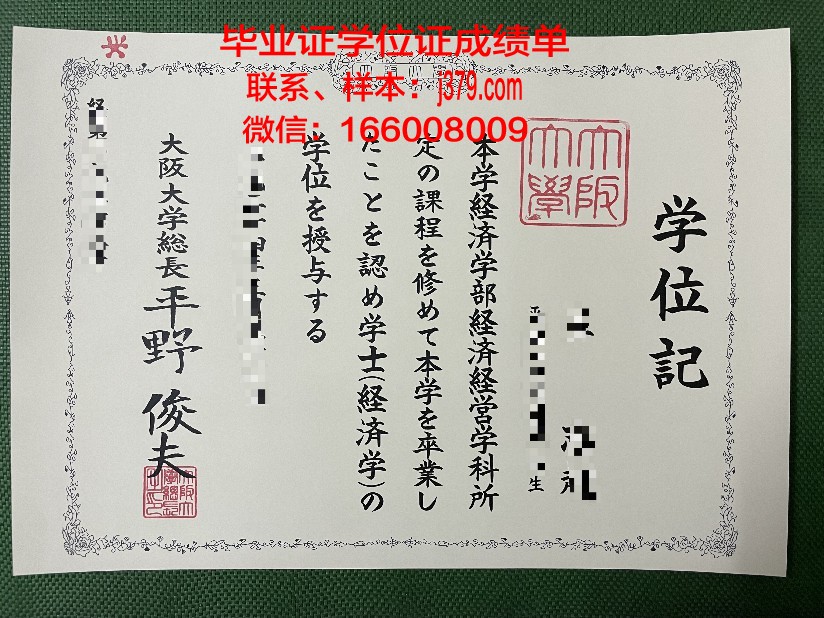 毕业证学位证成绩单
联系、样本：j379.com
微信：166008009
学位記
大阪
大學
生
本学経済学部経済経営学科所
定の課程を修めて本学を卒業し
たことを認め学士(経済学)の
学位を授与する
大阪大学総長 平野 俊夫